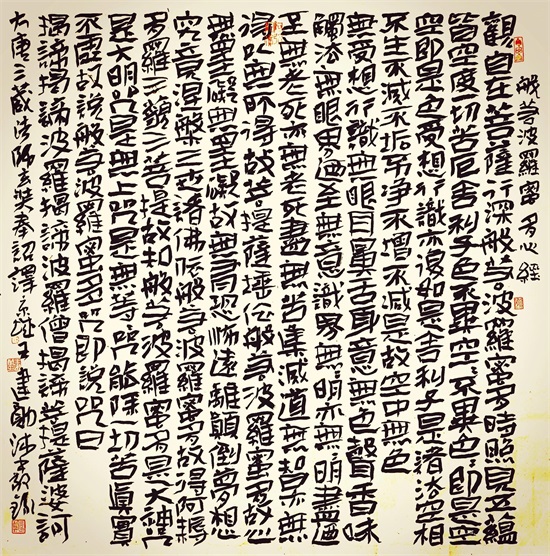 般若波羅蜜多心經
觀自在菩薩行深般若波羅蜜多時照見五蘊
皆空度一切苦厄舍利子色不異空空不異色色即是空
空即是色受想行識亦復如是舍利子是諸法空相
不生不滅不垢不淨不增不減是故空中無色
無受想行識無眼耳鼻舌身意無色聲香味
觸法無眼界乃至無意識界無無明亦無無明盡乃
至無老死亦無老死盡無苦集滅道無智亦無
得以無所得故菩提薩埵依般若波羅蜜多故心
無罣礙無罣礙故無有恐怖遠離顛倒夢想
究竟涅槃三世諸佛依般若波羅蜜多故得阿耨
多羅三藐三菩提故知般若波羅蜜多是大神咒
是大明咒是無上咒是無等等咒能除一切苦真實
不虛故說般若波羅蜜多咒即說咒曰
揭諦揭諦波羅揭諦波羅僧揭諦菩提薩婆訶
大唐三藏法師玄奘奉詔譯 王建勛沐手敬錄